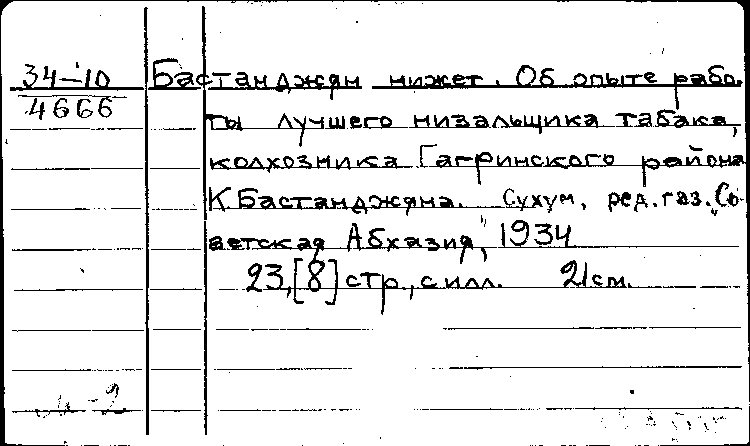 34-10
4666
Бастанджян нижет. Об опыте рабо-
ты лучшего низальщика табака,
колхозника Гагринского района
К Бастанджяна. Сухум, ред. газ. "Со-
ветская Абхазия", 1934
23,[8] стр., с илл. 21см.